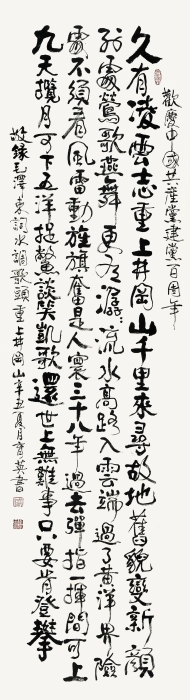 歡慶中國共產黨建黨一百周年
久有凌雲志重上井岡山千里來尋故地舊貌變新顏
到處鶯歌燕舞更有潺潺流水高路入雲端過了黃洋界險
處不須看風雷動旌旗奮是人寰三十八年過去彈指一揮間可上
九天攬月可下五洋捉鱉談笑凱歌還世上無難事只要肯登攀
敬錄毛澤東詞水調歌頭重上井岡山辛丑夏月